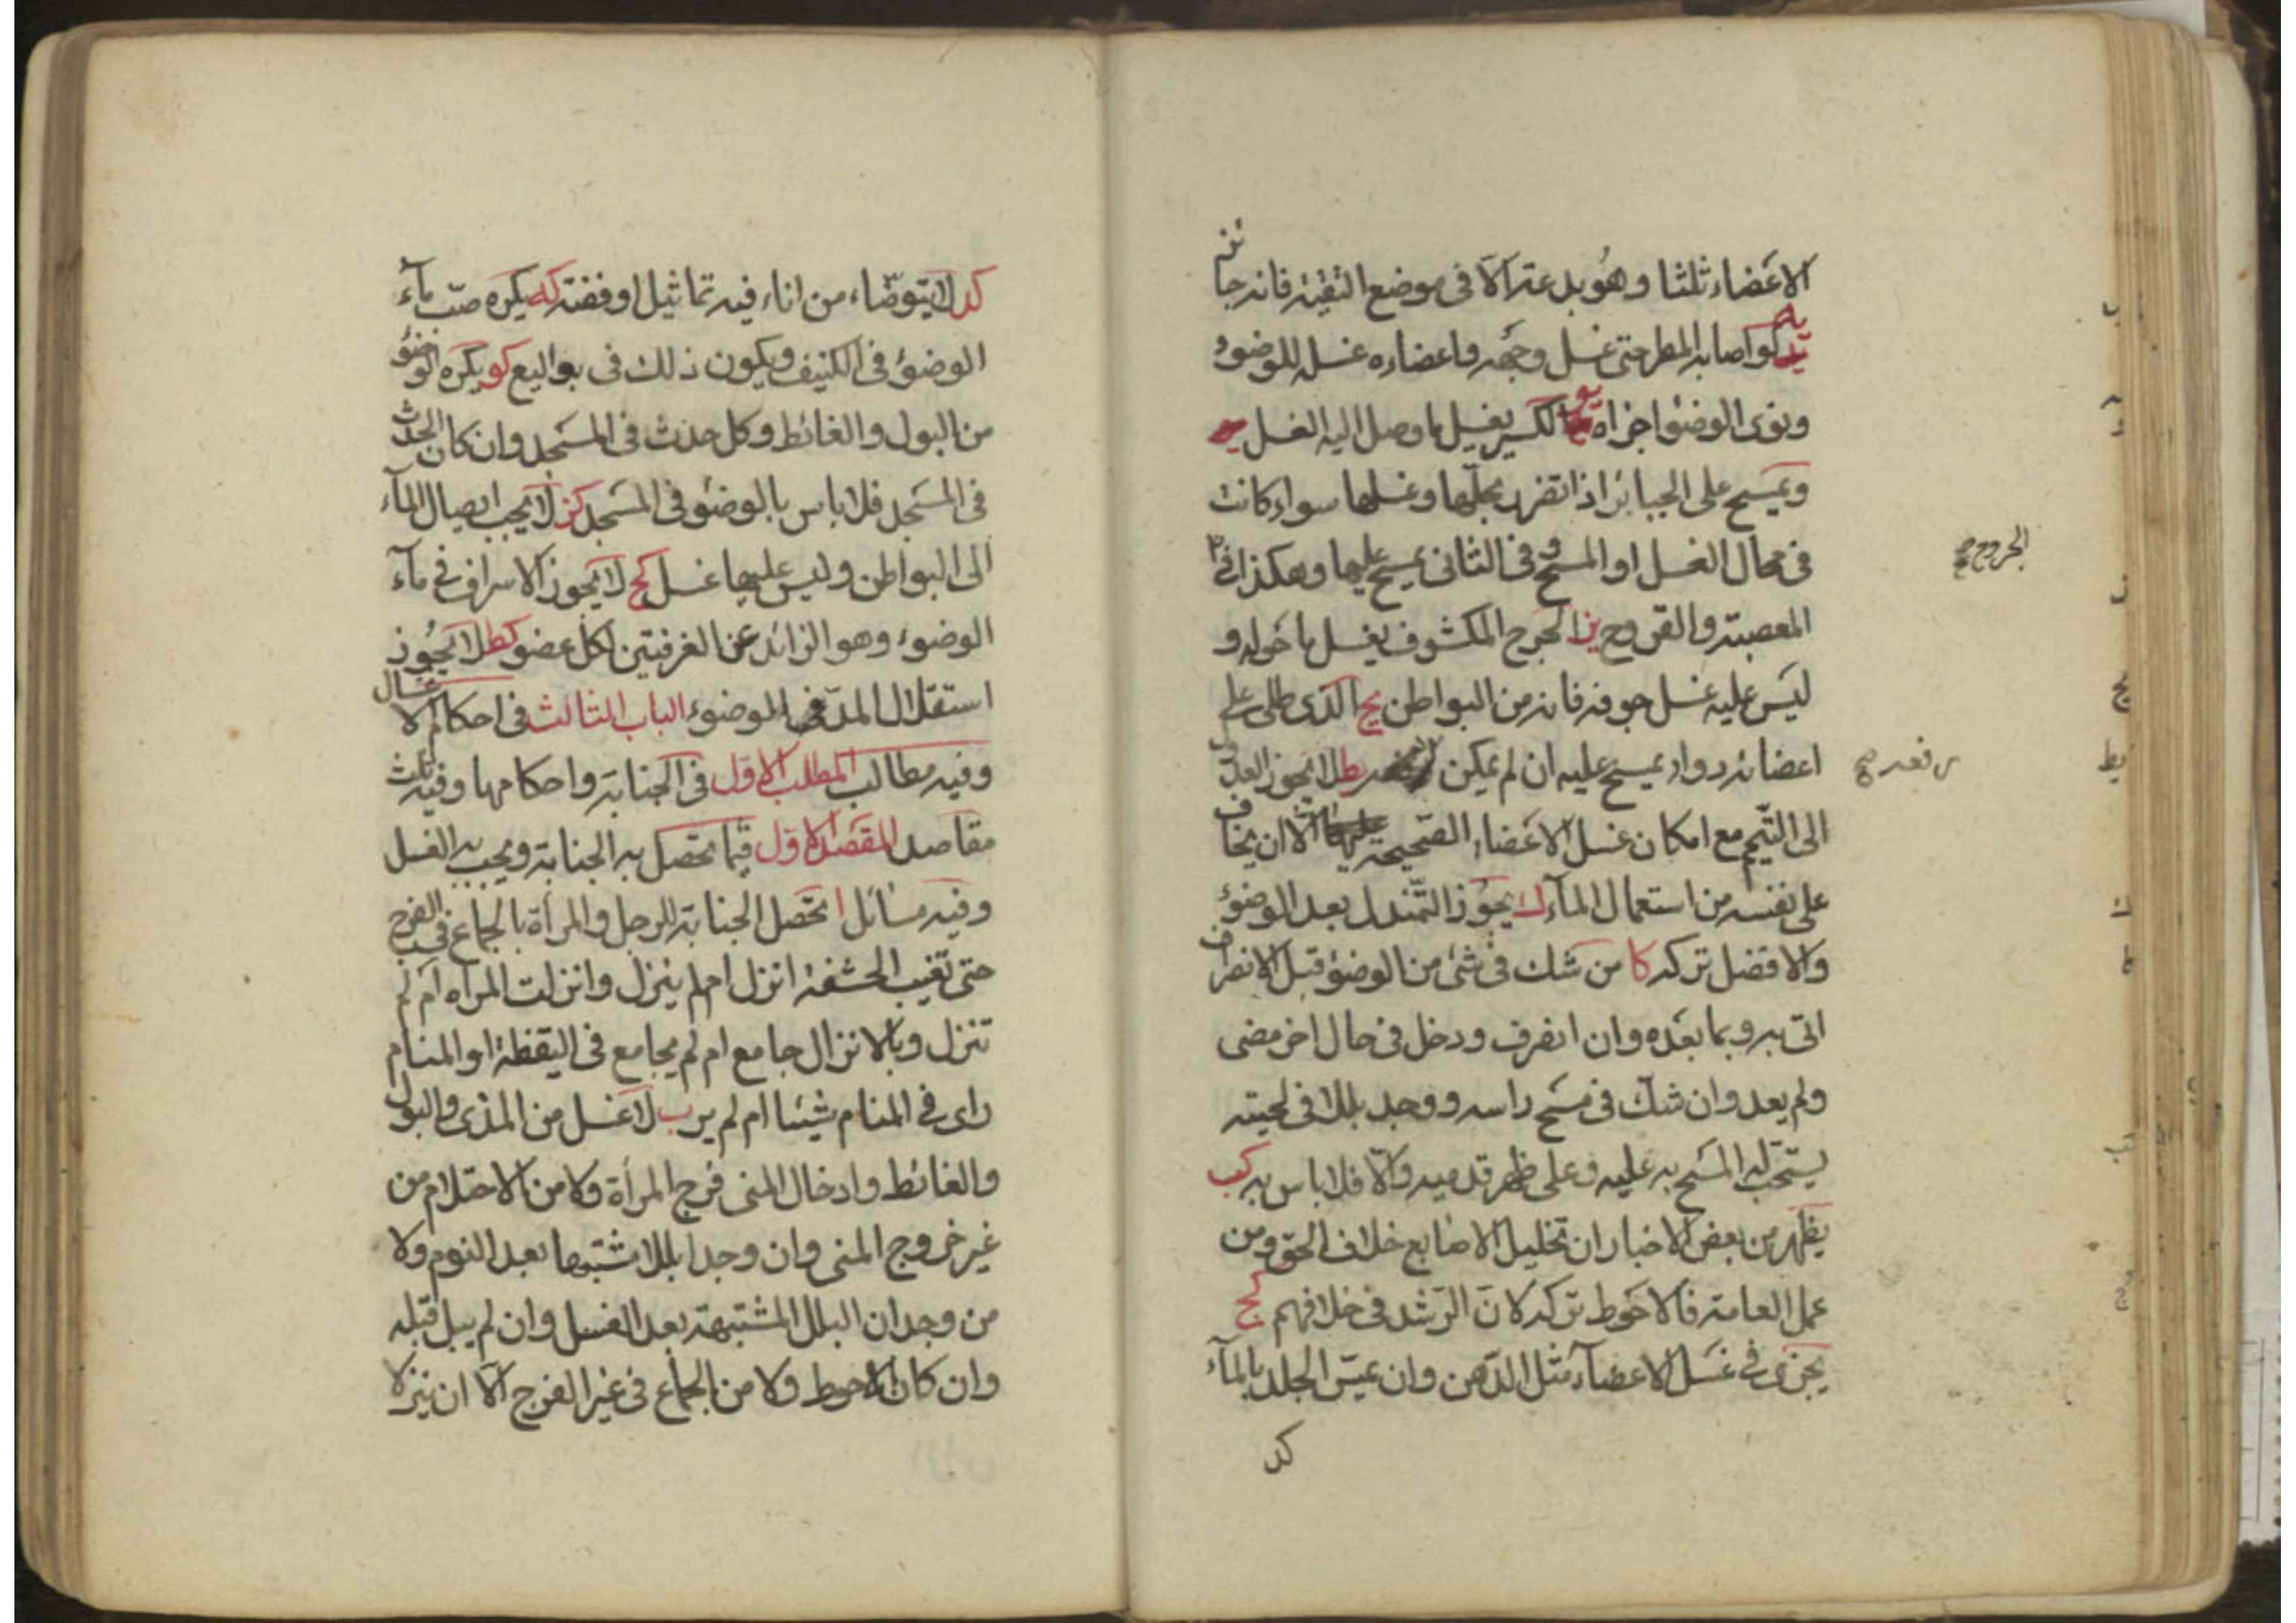 الاعضاء ثلثا وهو بدعة الا فى موضع التقية فانه جائز
يه لو اصابه المطر حتى غسل وجهه واعضاءه غسله للوضوء
ونوى الوضوء اجزاه يو الكسير يغسل ما وصل اليه الغسل
ويمسح على الجبائر اذا تضرر بحلها وغسلها سواء كانت
فى محال الغسل او المسح وفى الثانى يمسح عليها وهكذا فى
الجروح صح
المعصبة والقروح يز الجرح المكشوف يغسل ما حوله و
ليس عليه غسل جوفه فانه من البواطن يح الذى طلى على
اعضائه دواء يمسح عليه ان لم يمكن يط لا يجوز العدول
رفعه صح
الى التيمم مع امكان غسل الاعضاء الصحيحة الا ان يخاف
على نفسه من استعمال الماء ك يجوز التمندل بعد الوضوء
والافضل تركه كا من شك فى شئ من الوضوء قبل الانصراف
اتى به وبما بعده وان انصرف ودخل فى حال اخر مضى
ولم يعد وان شك فى مسح راسه ووجد بللا فى لحيته
يستحب له المسح به عليه وعلى ظهر قدميه والا فلا باس به كب
يظهر من بعض الاخبار ان تخليل الاصابع خلاف الحق ومن
عمل العامة فالاحوط تركه لان الرشد فى خلافهم كج
يجزى فى غسل الاعضاء مثل الدهن وان يمس الجلد بالماء
كد
كد لا يتوضاء من اناء فيه تماثيل او فضة كه يكره صب ماء
الوضوء فى الكنيف ويكون ذلك فى بواليع كو يكره الوضوء
من البول والغائط وكل حدث فى المسجد وان كان الحدث
فى المسجد فلا باس بالوضوء فى المسجد كز لا يجب ايصال الماء
الى البواطن وليس عليها غسل كح لا يجوز الاسراف فى ماء
الوضوء وهو الزائد عن الغرفتين لكل عضو كط لا يجوز
استقلال المد فى الوضوء الباب الثالث فى احكام الاغسال
وفيه مطالب المطلب الاول فى الجنابة واحكامها وفيه ثلث
مقاصد المقصد الاول فيما تحصل به الجنابة ويجب به الغسل
وفيه مسائل ا تحصل الجنابة للرجل والمرأة بالجماع فى الفرج
حتى تغيب الحشفة انزل ام لم ينزل وانزلت المراه ام لم
تنزل وبالانزال جامع ام لم يجامع فى اليقظة او المنام
راى فى المنام شيئا ام لم ير ب لا غسل من المذى والبول
والغائط وادخال المنى فرج المرأة ولا من الاحتلام من
غير خروج المنى وان وجد بللا مشتبها بعد النوم ولا
من وجدان البلل المشتبهة بعد الغسل وان لم يبل قبله
وان كان الاحوط ولا من الجماع فى غير الفرج الا ان ينزلا